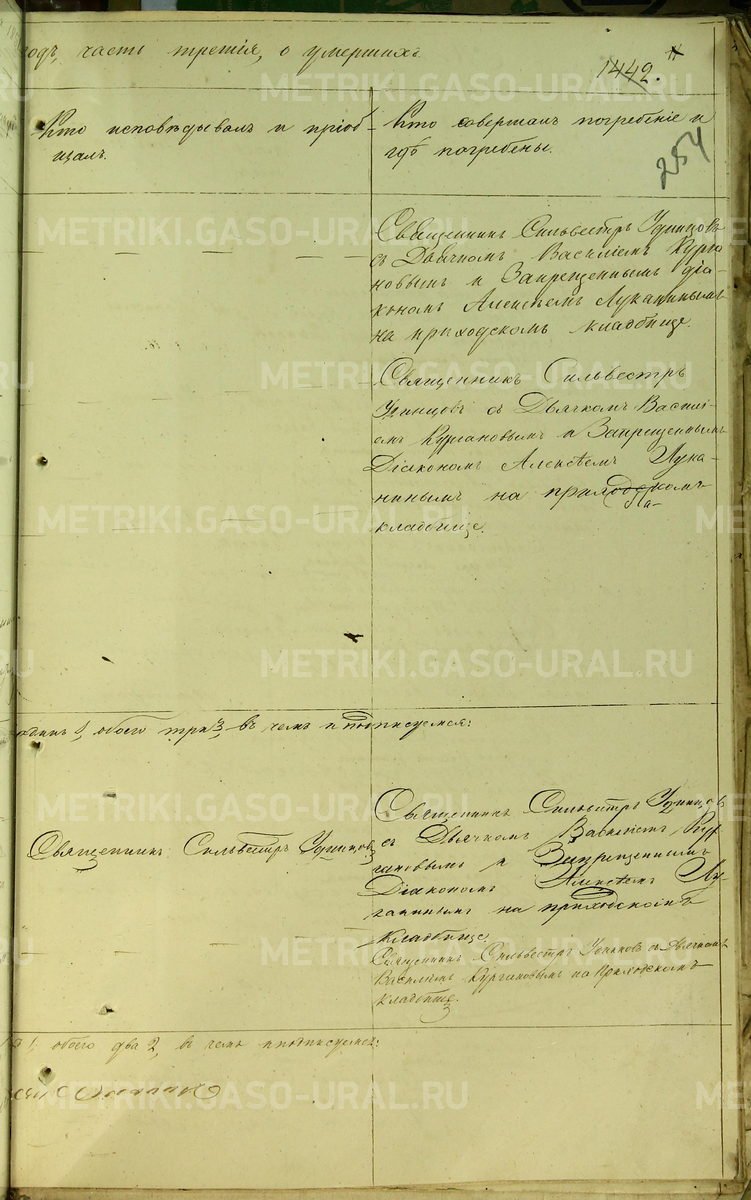 годъ, часть третія, о умершихъ.
1442.
254
Кто исповѣдывалъ и пріоб-
щалъ.
Кто совершалъ погребеніе и
гдѣ погребены.
Священникъ Сильвестръ Удинцовъ
съ Дьячкомъ Василіемъ Курга
новымъ и Запрещеннымъ діа-
кономъ Алексѣемъ Луканинымъ
на приходскомъ кладбище.
Священникъ Сильвестръ
Удинцовъ съ Дьячкомъ Василі-
емъ Кургановымъ и Запрещеннымъ
Діакономъ Алексѣемъ Лука-
нинымъ на приходскомъ
кладбище.
обоего три 3, въ чемъ и подписуемся:
Священникъ Сильвестръ Удинцовъ
Священникъ Сильвестръ Удинцовъ
съ Дьячкомъ Василіемъ Кур
гановымъ и Запрещеннымъ
Діакономъ Алексѣемъ Лу-
канинымъ на приходскомъ
кладбище.
Священникъ Сильвестръ Удинцовъ съ Дьячкомъ
Василіемъ Кургановымъ на Приходскомъ
кладбище.
1, обоего два 2, въ чемъ и подписуемся:
METRIKI.GASO-URAL.RU